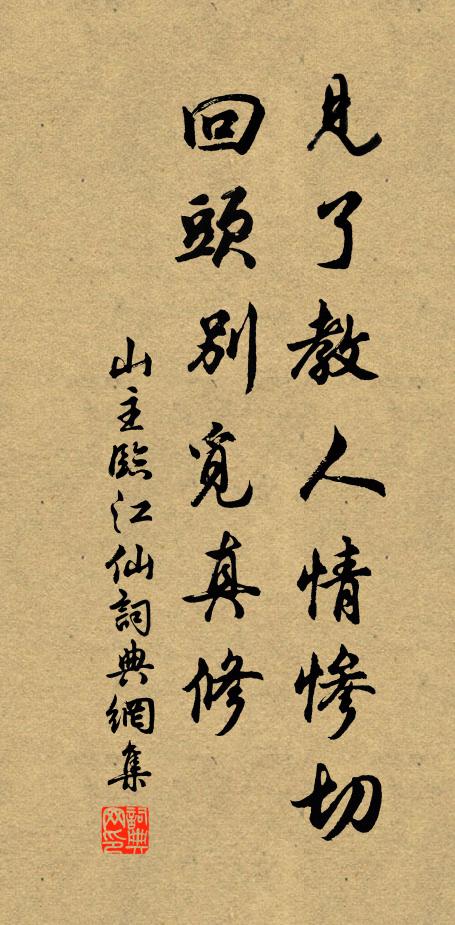 見了教人情慘切
回頭別覓真修
山主臨江仙詞典網集
詞典网印